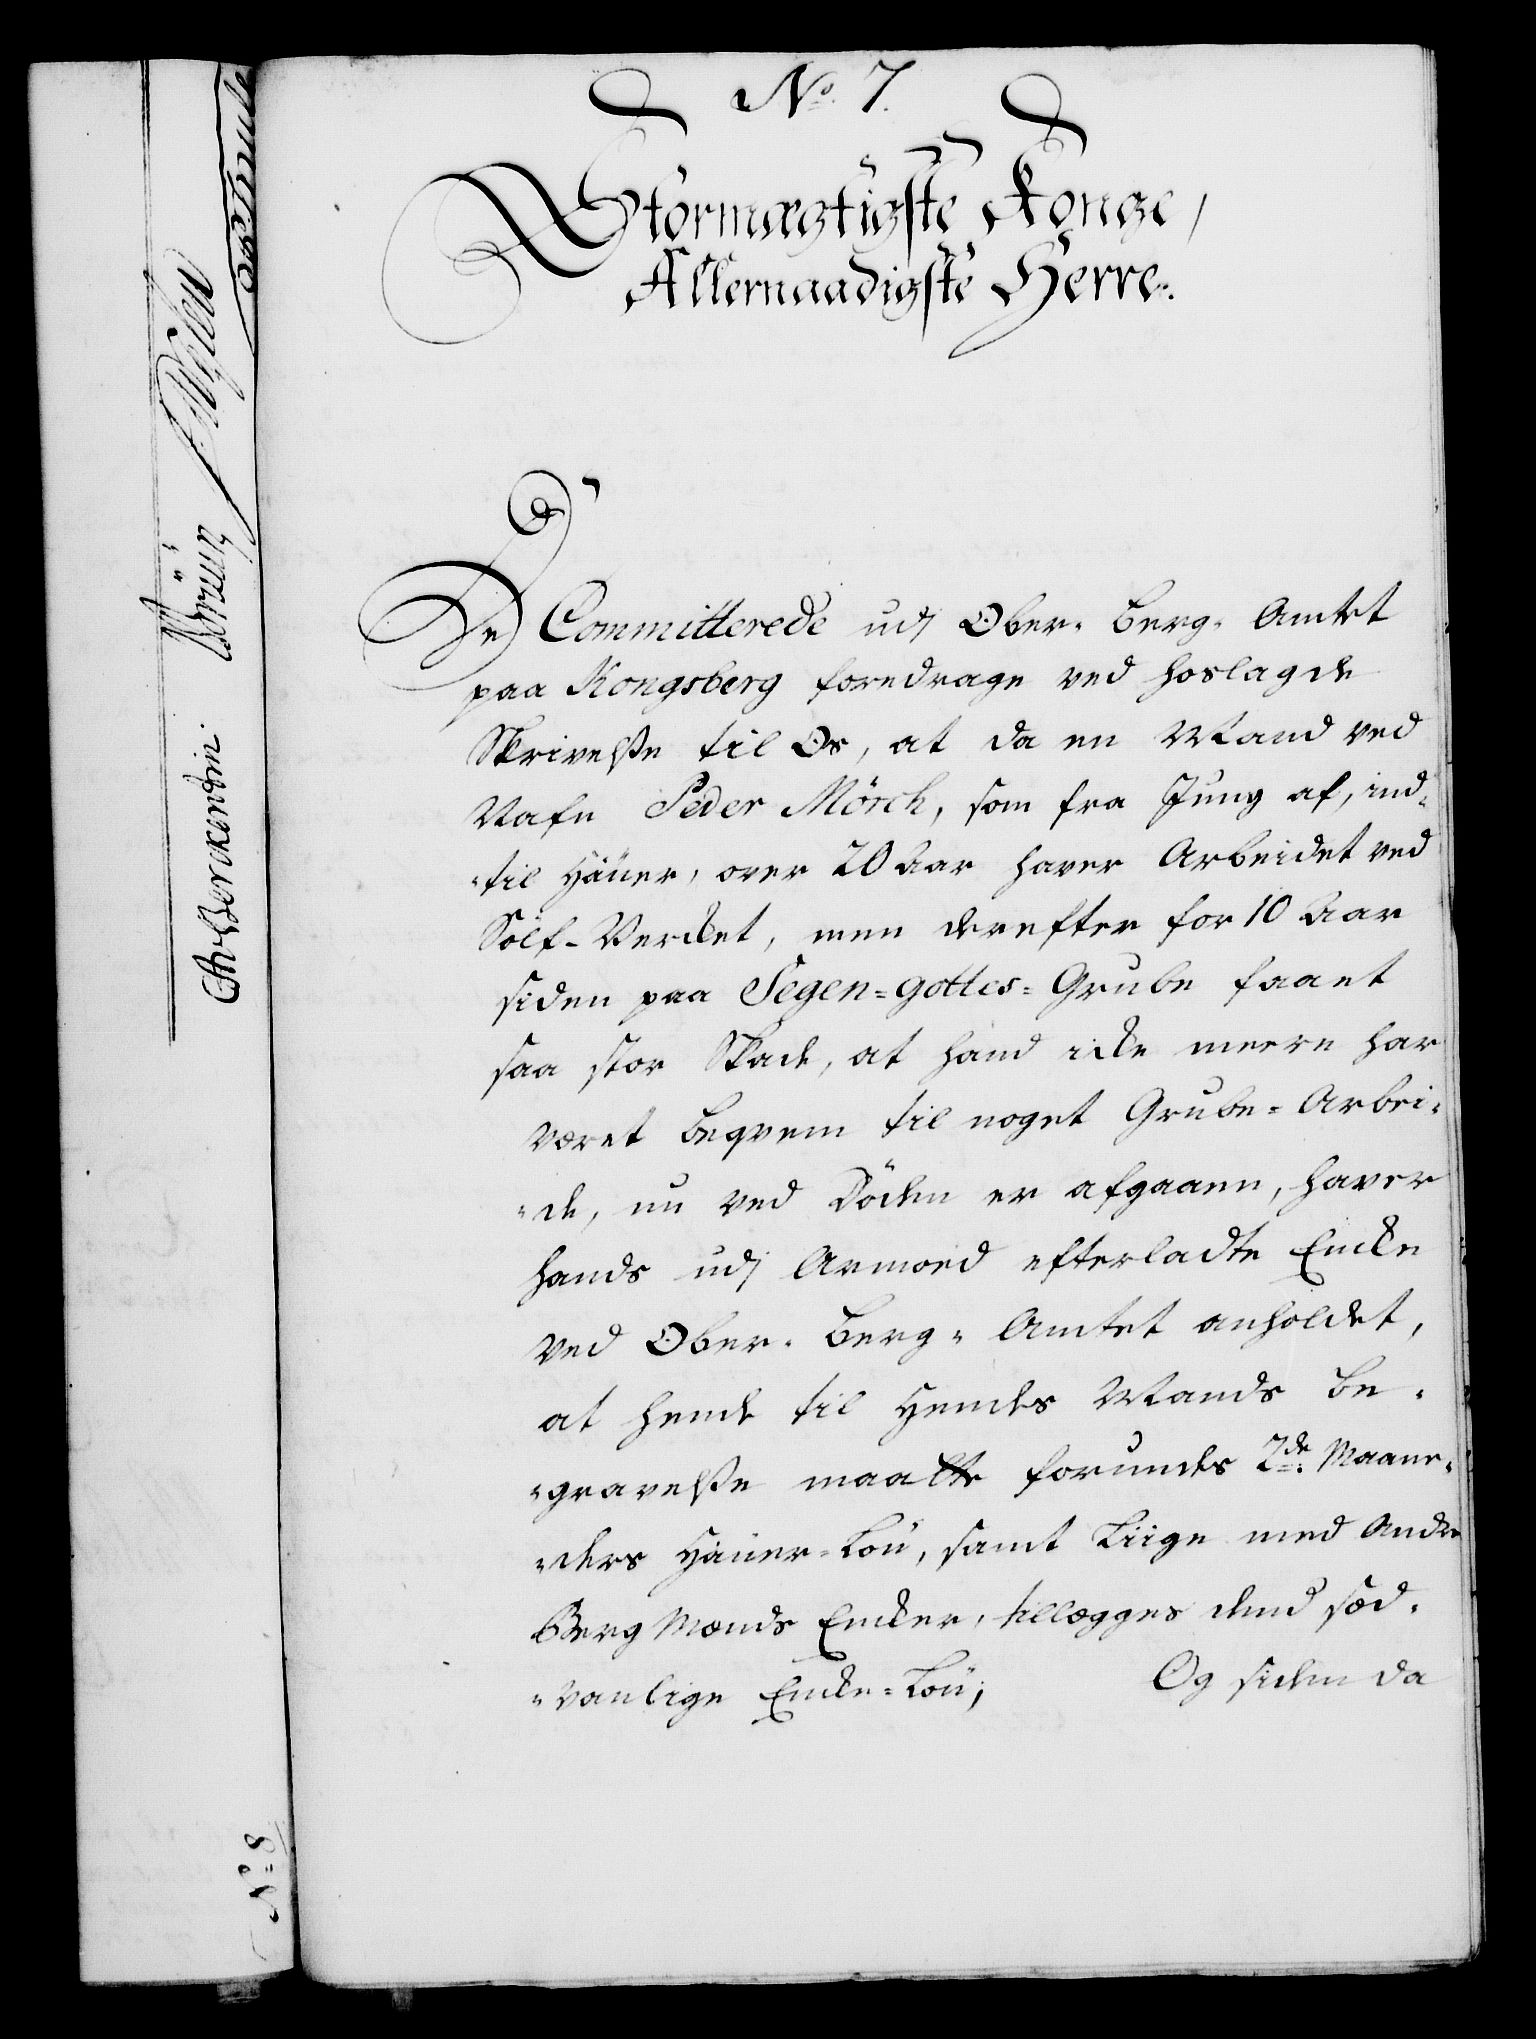 No. 7.
Stormægtigste Konge,
Allernaadigste Herre.
De Committerede udj Ober-Berg-Amtet
paa Kongsberg foredrage ved hoslagde
Skrivelße til Os, at da en Mand ved
Nafn Peder Mörch, som fra Jung af, ind-
-til Häuer, over 20 Aar haver Arbeidet ved
Sölf-Verket, men derefter for 10 Aar
siden paa Segen=gottes=Grube faaet
saa stor Skade, at hand icke meere har
været beqvem til noget Grube=Arbei-
-de, nu ved Döden er afgaaen, haver
hands udj Armoed efterladte Encke
ved Ober-Berg-Amtet anholdet,
at hende til Hendes Mands Be-
-gravelße maatte forundes 2de Maane-
-ders Häuer=Lön, samt Liige med Andre
Berg Mænds Encker, tillægges dend sæd-
-vanlige Encke=Lön;
Og siden da
Brüün
ChvBerckentin.
No 8